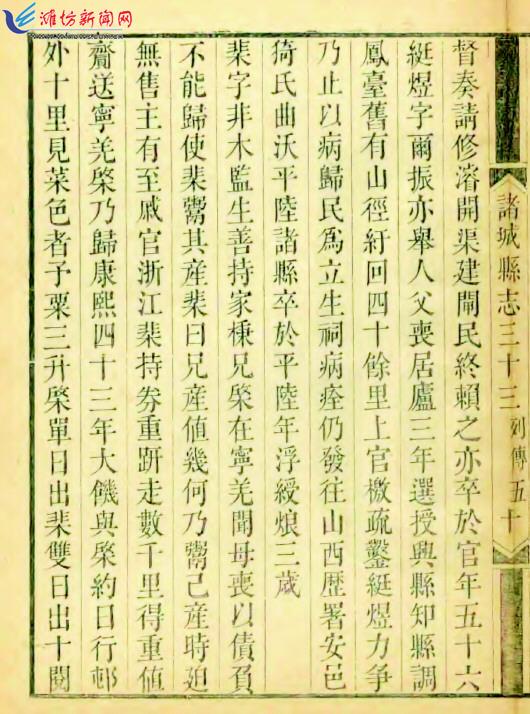 潍坊新闻网
諸城縣志三十三 列傳 五十
督奏請修濬開渠建閘民終賴之亦卒於官年五十六
綎煜字爾振亦舉人父喪居廬三年選授興縣知縣調
鳳臺舊有山徑紆回四十餘里上官檄疏鑿綎煜力爭
乃止以病歸民爲立生祠病痊仍發往山西歷署安邑
猗氏曲沃平陸諸縣卒於平陸年浮綬烺三歲
棐字非木監生善持家棅兄棨在寧羌聞母喪以債負
不能歸使棐鬻其產棐曰兄產値幾何乃鬻己產時迫
無售主有至戚官浙江棐持券重趼走數千里得重値
齎送寧羌棨乃歸康熙四十三年大饑與棨約日行邨
外十里見菜色者予粟三升棨單日出棐雙日出十閱